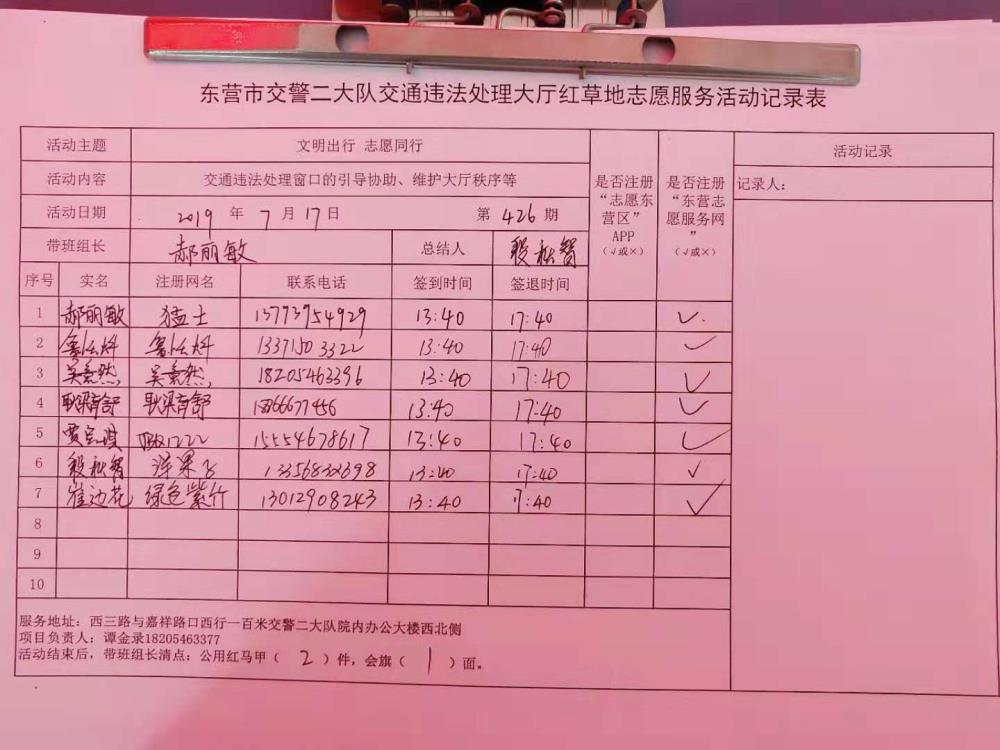 东营市交警二大队交通违法处理大厅红草地志愿服务活动记录表
活动主题 文明出行 志愿同行
活动内容 交通违法处理窗口的引导协助、维护大厅秩序等
活动日期 2019 年 7 月 17 日 第 426 期
带班组长 郝丽敏 总结人 殷秋智
是否注册“志愿东营区”APP（√或×）
是否注册“东营志愿服务网”（√或×）
活动记录
记录人：
序号 实名 注册网名 联系电话 签到时间 签退时间
1 郝丽敏 猛士 13773954929 13:40 17:40 ✓
2 13371503322 13:40 17:40 ✓
3 18205463396 13:40 17:40 ✓
4 13:40 17:40 ✓
5 15554678617 13:40 17:40 ✓
6 殷秋智 13:40 17:40 ✓
7 绿色紫竹 13012908243 13:40 17:40 ✓
8
9
10
服务地址：西三路与嘉祥路口西行一百米交警二大队院内办公大楼西北侧
项目负责人：谭金录18205463377
活动结束后，带班组长清点：公用红马甲（ 2 ）件，会旗（ 1 ）面。